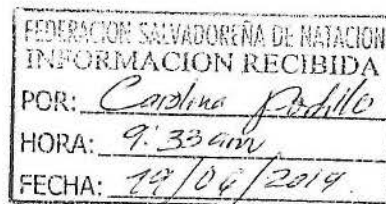 FEDERACION SALVADOREÑA DE NATACION
INFORMACION RECIBIDA
POR: Carolina Portillo
HORA: 9:33 am
FECHA: 19/06/2019.